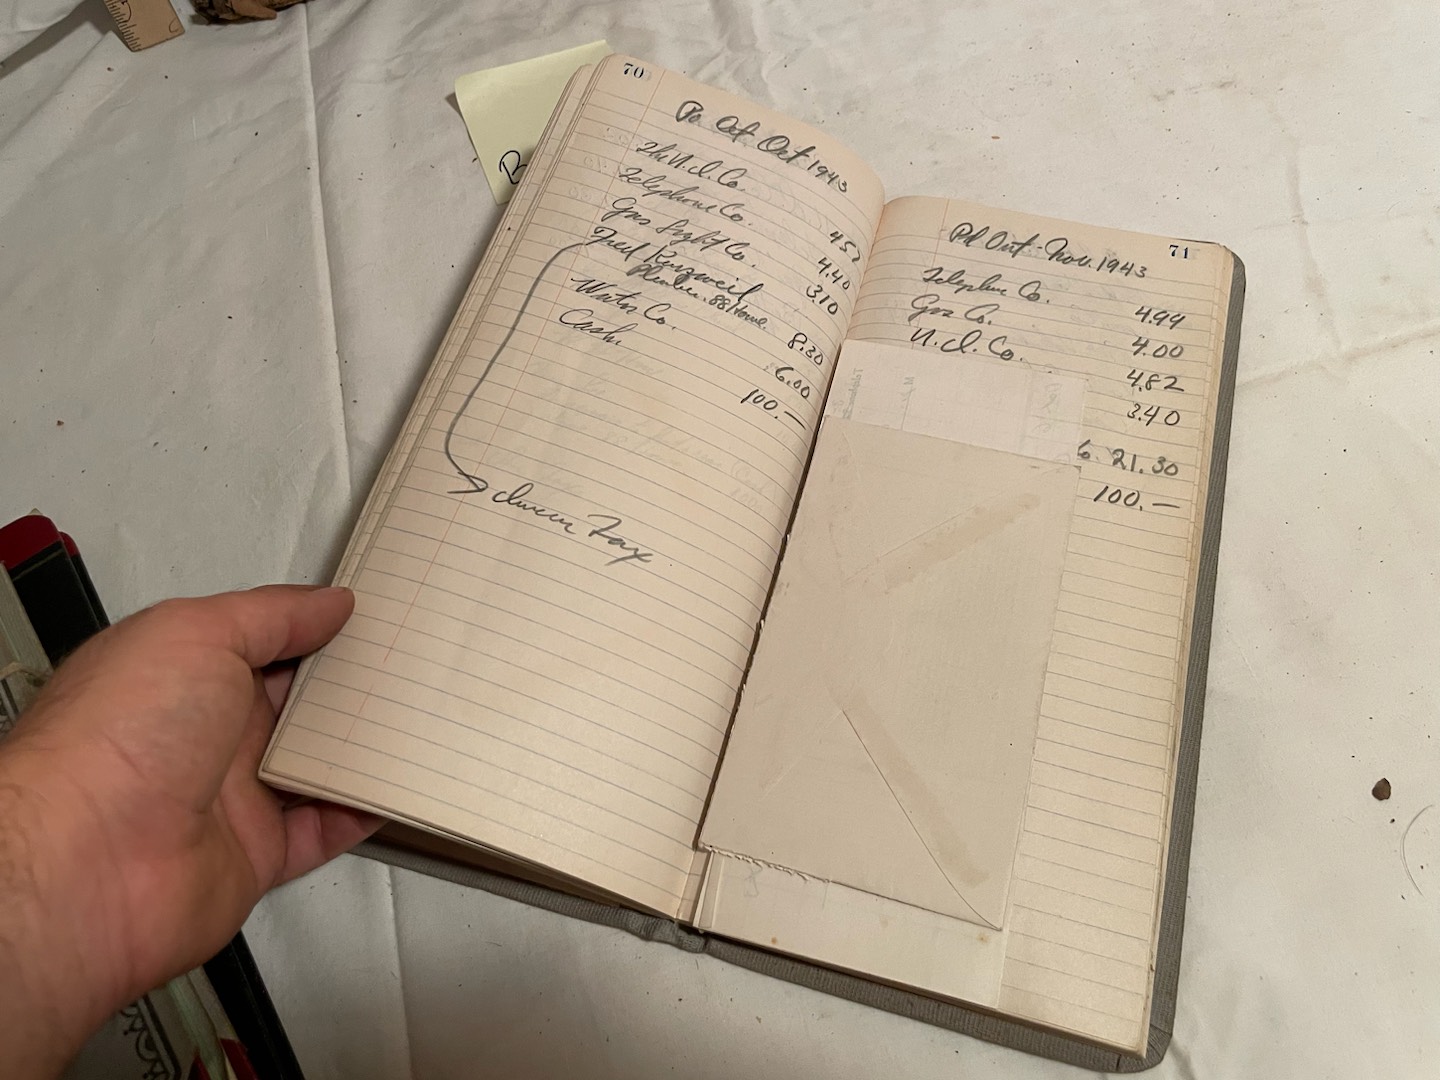 70
Pd Out Oct 1943
The N.I. Co. 4.52
Telephone Co. 4.40
Gas Light Co. 3.10
Fred Kurzweil
Plumber. 88 Howe. 8.30
Water Co. 6.00
Cash. 100.—
Fay
71
Pd Out - Nov. 1943
Telephone Co. 4.99
Gas Co. 4.00
N.I. Co. 4.82
3.40
21.30
100.—
B